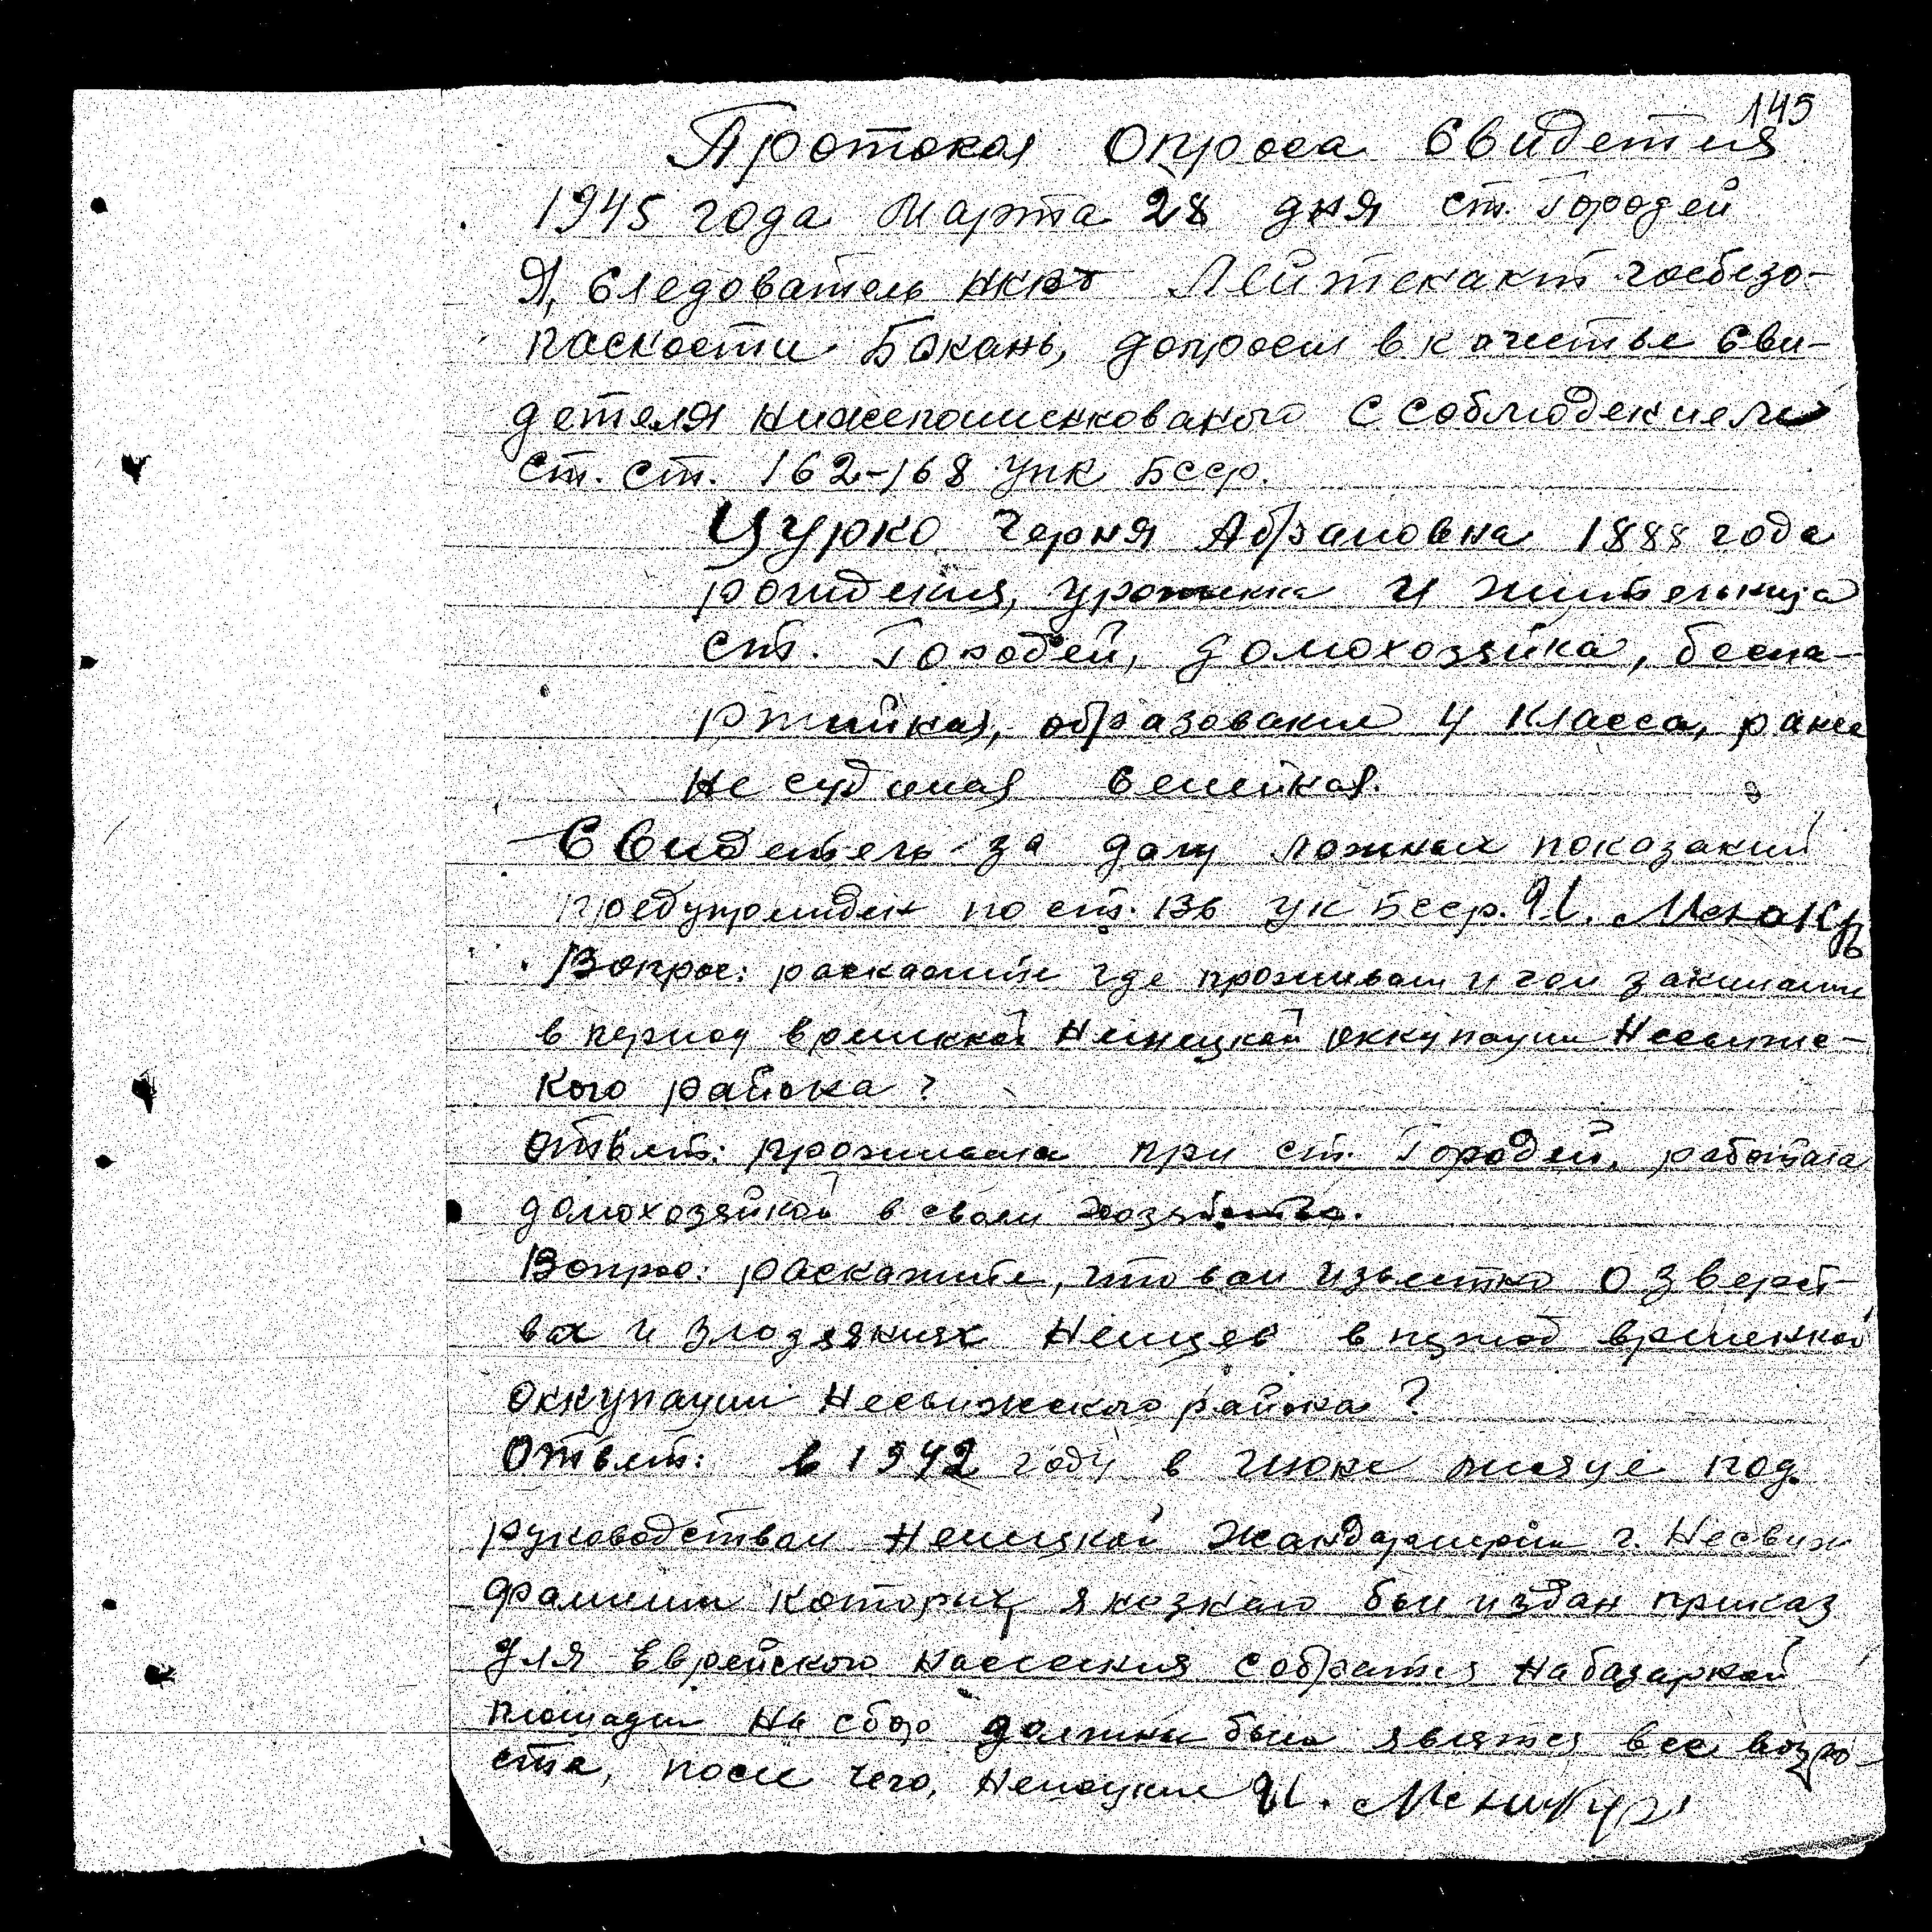 145
Протокол Опроса Свидетеля
1945 года Марта 28 дня ст. Городей
Я, Следователь НКГБ Лейтенант госбезо-
пасности Бакань, допросил в качестве сви-
детеля нижепоименованого с соблюдением
ст. ст. 162-168 УПК БССР.
Цурко Черня Абрамовна 1888 года
рождения, урожинка и жительница
ст. Городей, домохозяйка, беспа-
ртийная, образование 4 класса, ранее
не судимая семейная.
Свидетель за дачу ложных показаний
предупрежден по ст. 136 УК БССР.
Вопрос: раскажите где проживали и чем занимались
в период временной Немецкой оккупации Несвижс-
кого района?
Ответ: проживала при ст. Городей, работала
домохозяйкой в своем хозяйстве.
Вопрос: раскажите, что вам известно о зверст-
вах и злодеяниях Немцев в период временной
оккупации Несвижского района?
Ответ: в 1942 году в июне месяце под
руководством Немецкой жандармерии г. Несвиж
фамилии которых я незнаю был издан приказ
для Еврейского населения собратся на базарной
площади на сбор должны были явятся все возро-
ста, после чего, Немецкие